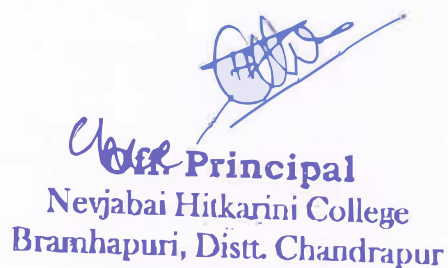 Offi. Principal
Nevjabai Hitkarini College
Bramhapuri, Distt. Chandrapur